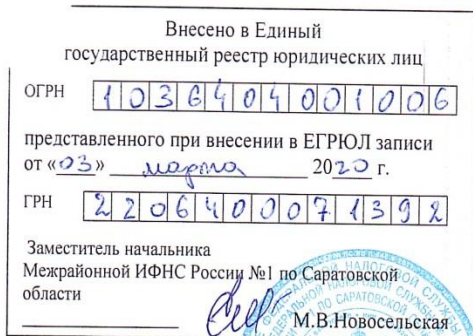 Внесено в Единый
государственный реестр юридических лиц
ОГРН 1036404001006
представленного при внесении в ЕГРЮЛ записи
от «03» марта 2020 г.
ГРН 2206400071392
Заместитель начальника
Межрайонной ИФНС России №1 по Саратовской
области
М.В.Новосельская
НАЛОГОВОЙ СЛУЖБЫ
ПО САРАТОВСКОЙ